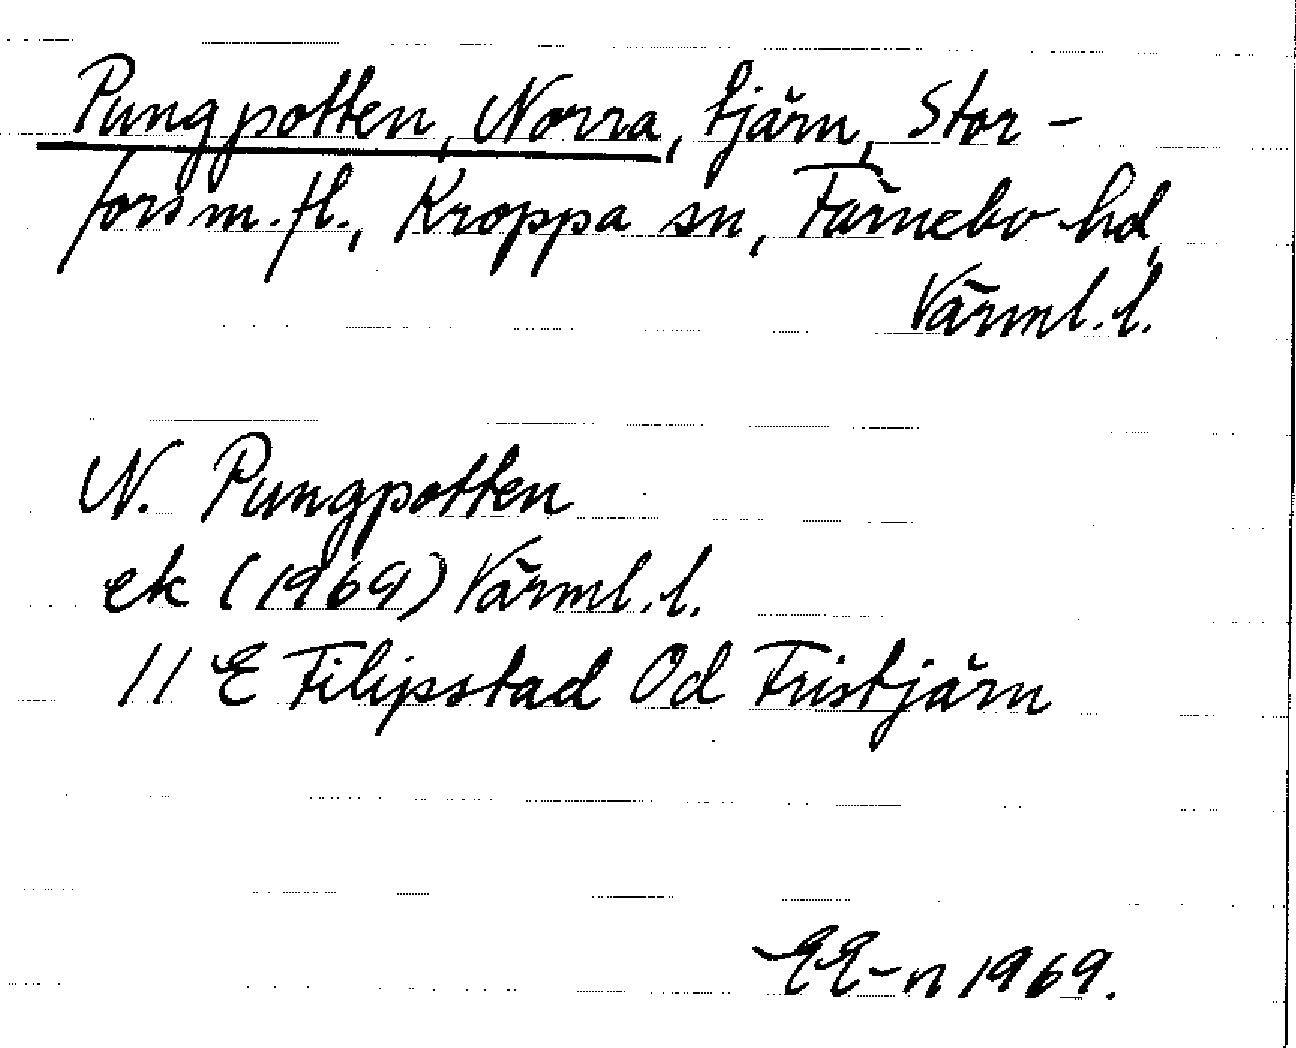 Pungpotten, Norra, tjärn, Stor-
fors m.fl., Kroppa sn, Färnebo hd,
Värml.l.
N. Pungpotten
ek (1969) Värml.l.
11 E Filipstad Od Fristjärn
EE-n 1969.